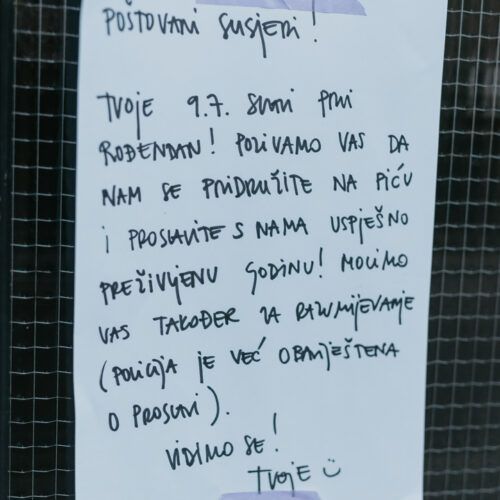 POŠTOVANI SUSJEDI!
TVOJE 9.7. SLAVI PRVI
ROĐENDAN! POZIVAMO VAS DA
NAM SE PRIDRUŽITE NA PIĆU
I PROSLAVITE S NAMA USPJEŠNO
PREŽIVJENU GODINU! MOLIMO
VAS TAKOĐER ZA RAZUMIJEVANJE
(POLICIJA JE VEĆ OBAVJEŠTENA
O PROSLAVI).
VIDIMO SE!
TVOJE